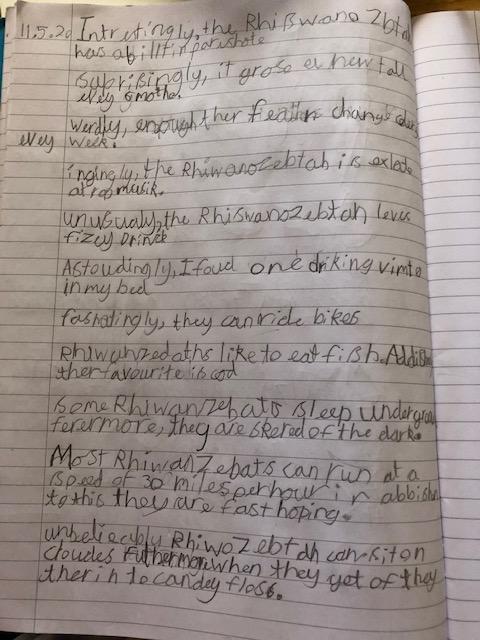 11.5.20 Intrestingly, the Rhißwano Zbtah
has abillt in parishote
Subrisingly, it grose a new tall
evey 6 mothe.
Werdly, enought ther feathr change coler
evey week.
ingingly, the Rhiwanozebtah is
at pop musik.
unusualy, the Rhiswanozebtah loves
fizey Drinck
Astoudingly, I foud one driking vimto
in my bed
fashatingly, they can ride bikes
Rhiwanzedaths like to eat fish. Addish
ther favourite is cod
Some Rhiwanzebats sleep undergrou
ferermore, they are skered of the dark.
Most Rhiwanzebats can run at a
speed of 30 miles per hour in abbishon
to this they are fast hoping.
unbeliecably RhiwoZebtah can sit on
cloudes Futhermore when they get of they
ther in to candey floss.